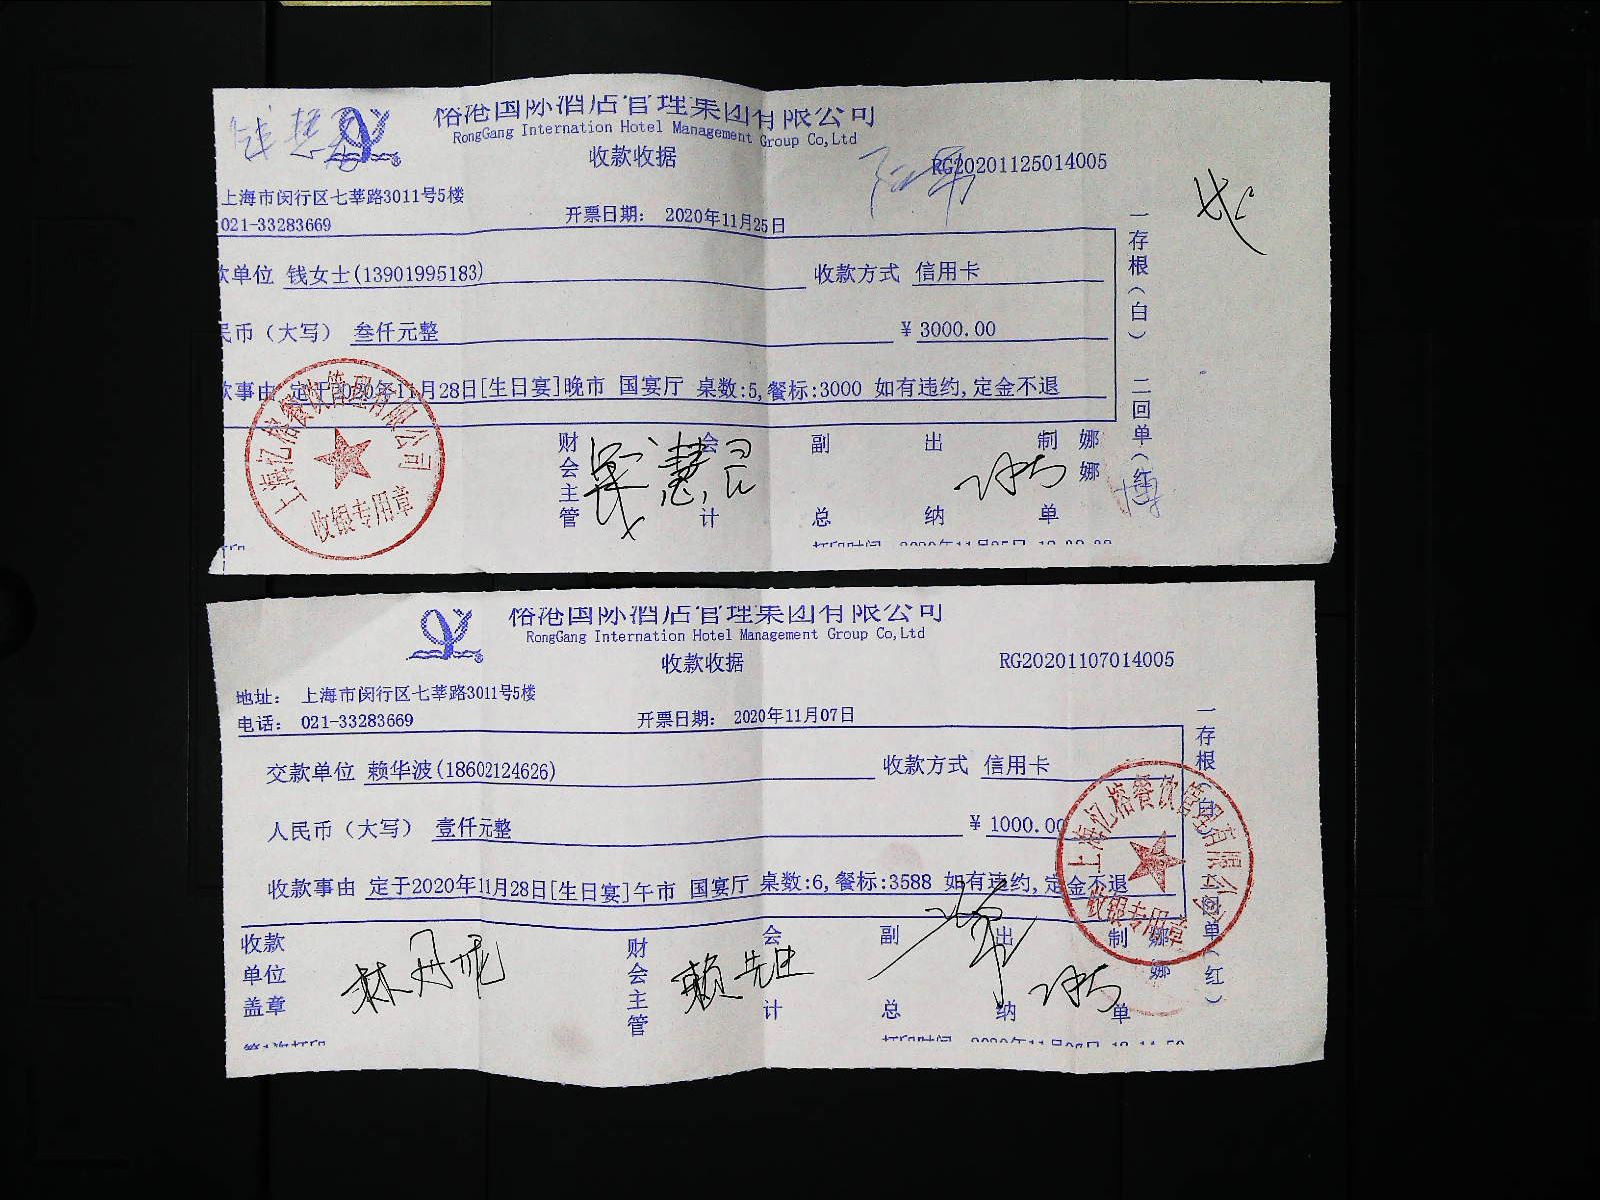 俗港国际酒店管理集团有限公司
RongGang Internation Hotel Management Group Co,Ltd
收款收据
RG20201125014005
上海市闵行区七莘路3011号5楼
021-33283669
开票日期: 2020年11月25日
款单位 钱女士(13901995183)
收款方式 信用卡
民币（大写） 叁仟元整
¥ 3000.00
款事由 定于2020年11月28日[生日宴]晚市 国宴厅 桌数:5,餐标:3000 如有违约,定金不退
财会主管
会计
副总
出纳
制单
娜娜
一存根（白） 二回单（红
上海忆榕餐饮管理有限公司
收银专用章
打印时间 2020年11月25日
俗港国际酒店管理集团有限公司
RongGang Internation Hotel Management Group Co,Ltd
收款收据
RG20201107014005
地址: 上海市闵行区七莘路3011号5楼
电话: 021-33283669
开票日期: 2020年11月07日
交款单位 赖华波(18602124626)
收款方式 信用卡
人民币（大写） 壹仟元整
¥ 1000.00
收款事由 定于2020年11月28日[生日宴]午市 国宴厅 桌数:6,餐标:3588 如有违约,定金不退
收款单位盖章
林丹妮
财会主管
会计
赖先生
副总
出纳
制单
娜娜
一存根（白） 二回单（红）
上海忆榕餐饮管理有限公司
收银专用章
第1次打印
打印时间 2020年11月07日